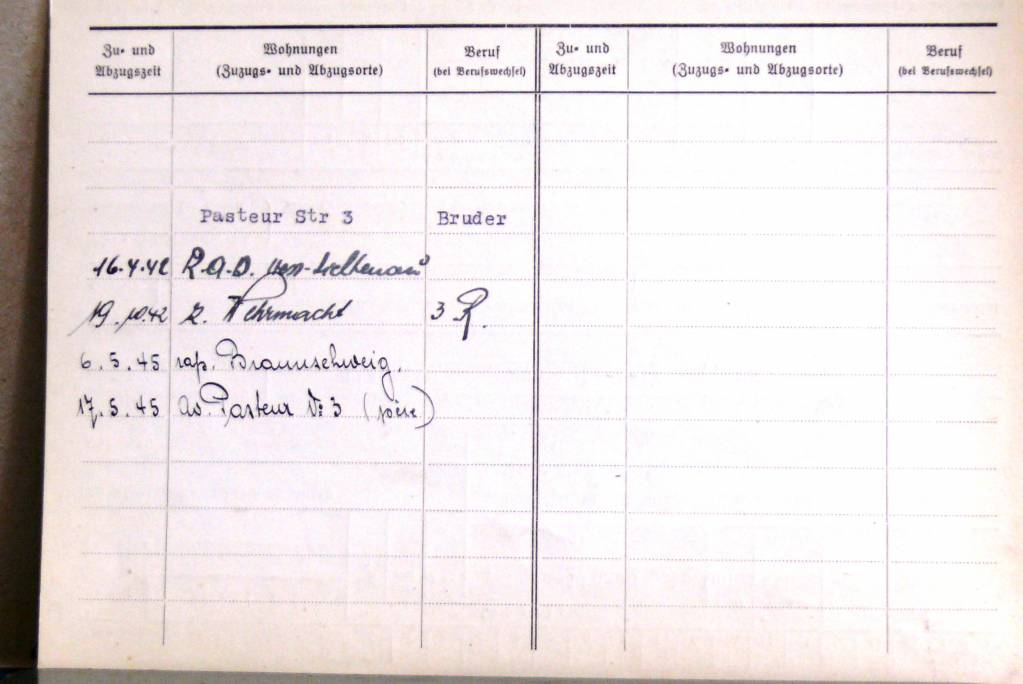 Zu- und Abzugszeit
Wohnungen
(Zuzugs- und Abzugsorte)
Beruf
(bei Berufswechsel)
Zu- und Abzugszeit
Wohnungen
(Zuzugs- und Abzugsorte)
Beruf
(bei Berufswechsel)
Pasteur Str 3 Bruder
16.4.42 R.A.D.
19.10.42 z. Wehrmacht 3 R.
6.5.45 rap. Braunschweig.
17.5.45 av. Pasteur № 3 (père)